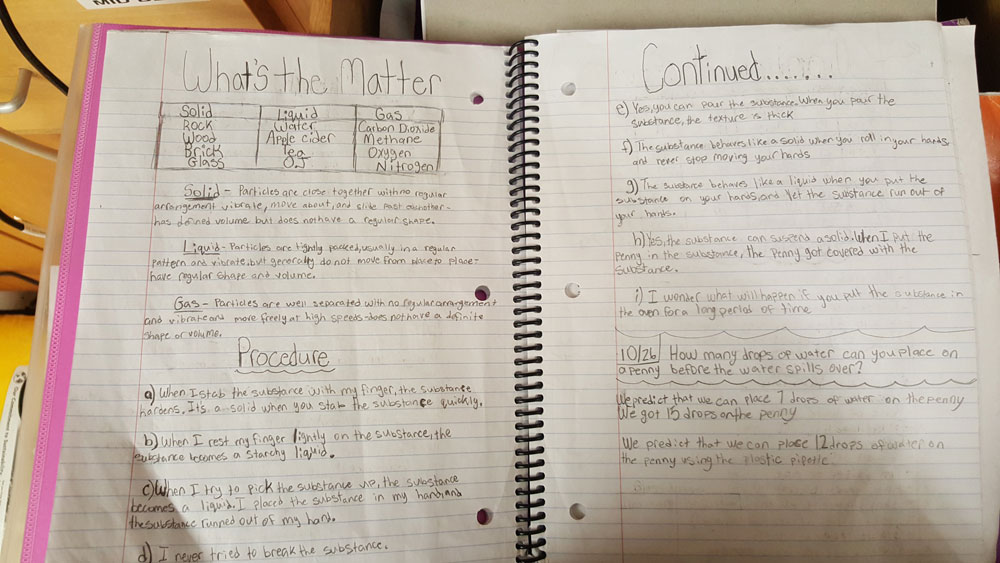 What's the Matter
Solid Liquid Gas
Rock Water Carbon Dioxide
Wood Apple cider Methane
Brick Tea Oxygen
Glass OJ Nitrogen
Solid - Particles are close together with no regular
arrangement vibrate, move about, and slide past another-
has defined volume but does not have a regular shape.
Liquid - Particles are tightly packed, usually in a regular
pattern and vibrate, but generally do not move from place to place-
have regular shape and volume.
Gas - Particles are well separated with no regular arrangement
and vibrate and more freely at high speeds-does not have a definite
shape or volume.
Procedure
a) When I stab the substance with my finger, the substance
hardens. Its a solid when you stab the substance quickly.
b) When I rest my finger lightly on the substance, the
substance becomes a starchy liquid.
c) When I try to pick the substance up, the substance
becomes a liquid. I placed the substance in my hand, and
the substance runned out of my hand.
d) I never tried to break the substance.
Continued.......
e) Yes, you can pour the substance. When you pour the
substance, the texture is thick
f) The substance behaves like a solid when you roll in your hands,
and never stop moving your hands
g) The substance behaves like a liquid when you put the
substance on your hands, and let the substance run out of
your hands.
h) Yes, the substance can suspend a solid. When I put the
penny in the substance, The penny got covered with the
substance.
i) I wonder what will happen if you put the substance in
the oven for a long period of time
10/26 How many drops of water can you place on
a penny before the water spills over?
We predict that we can place 7 drops of water on the penny
We got 15 drops on the penny
We predict that we can place 12 drops of water on
the penny using the plastic pipette.